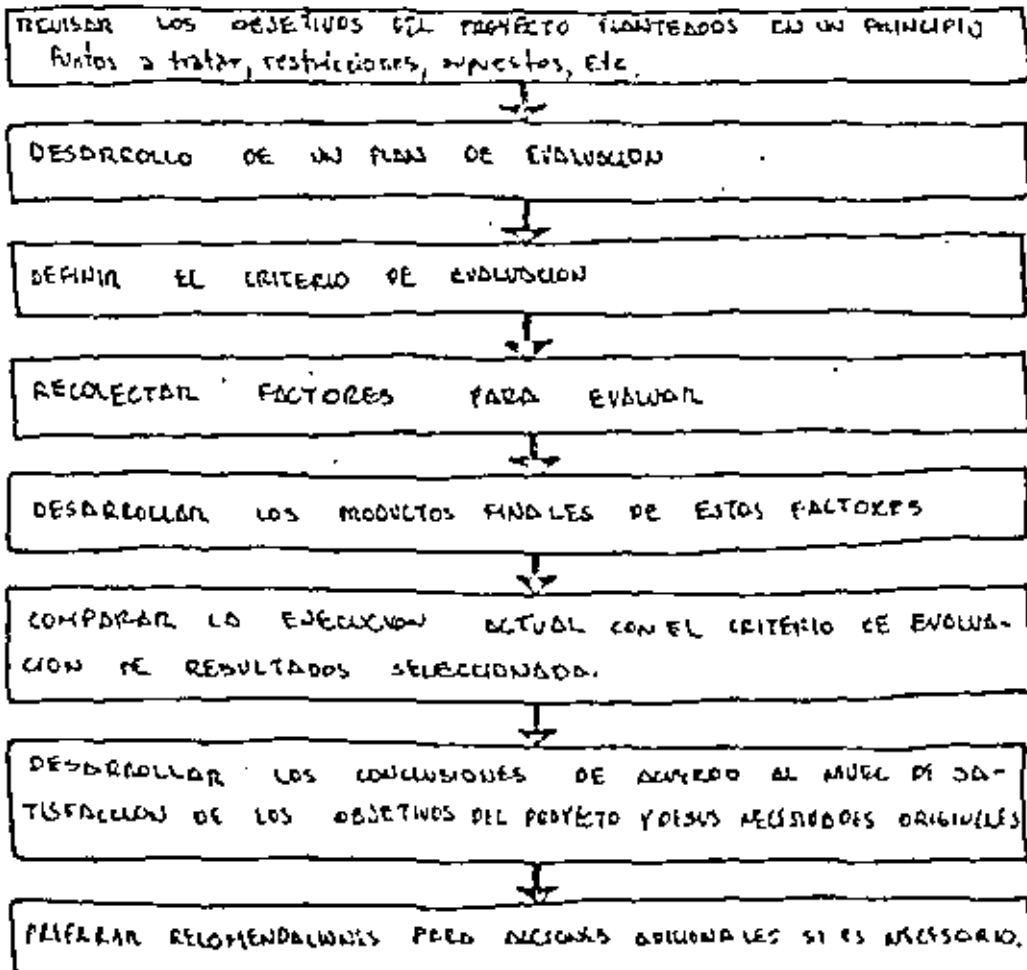 REVISAR LOS OBJETIVOS DEL PROYECTO PLANTEADOS EN UN PRINCIPIO
Puntos a tratar, restricciones, supuestos, Etc.
DESARROLLO DE UN PLAN DE EVALUACION
DEFINIR EL CRITERIO DE EVALUACION
RECOLECTAR FACTORES PARA EVALUAR
DESARROLLAR LOS PRODUCTOS FINALES DE ESTOS FACTORES
COMPARAR LA EJECUCION ACTUAL CON EL CRITERIO DE EVALUA-
CION DE RESULTADOS SELECCIONADA.
DESARROLLAR LOS CONCLUSIONES DE ACUERDO AL NIVEL DE SA-
TISFACCION DE LOS OBJETIVOS DEL PROYECTO Y DE SUS NECESIDADES ORIGINALES
PREPARAR RECOMENDACIONES PARA ACCIONES ADICIONALES SI ES NECESARIO.